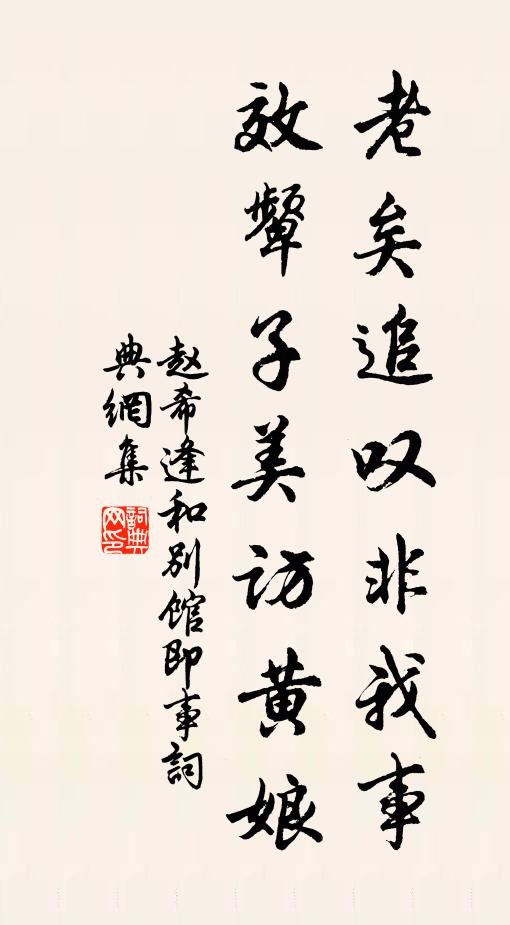 老矣追叹非我事
效颦子美访黄娘
赵希逢和别馆即事词
典網集
詞典
网印